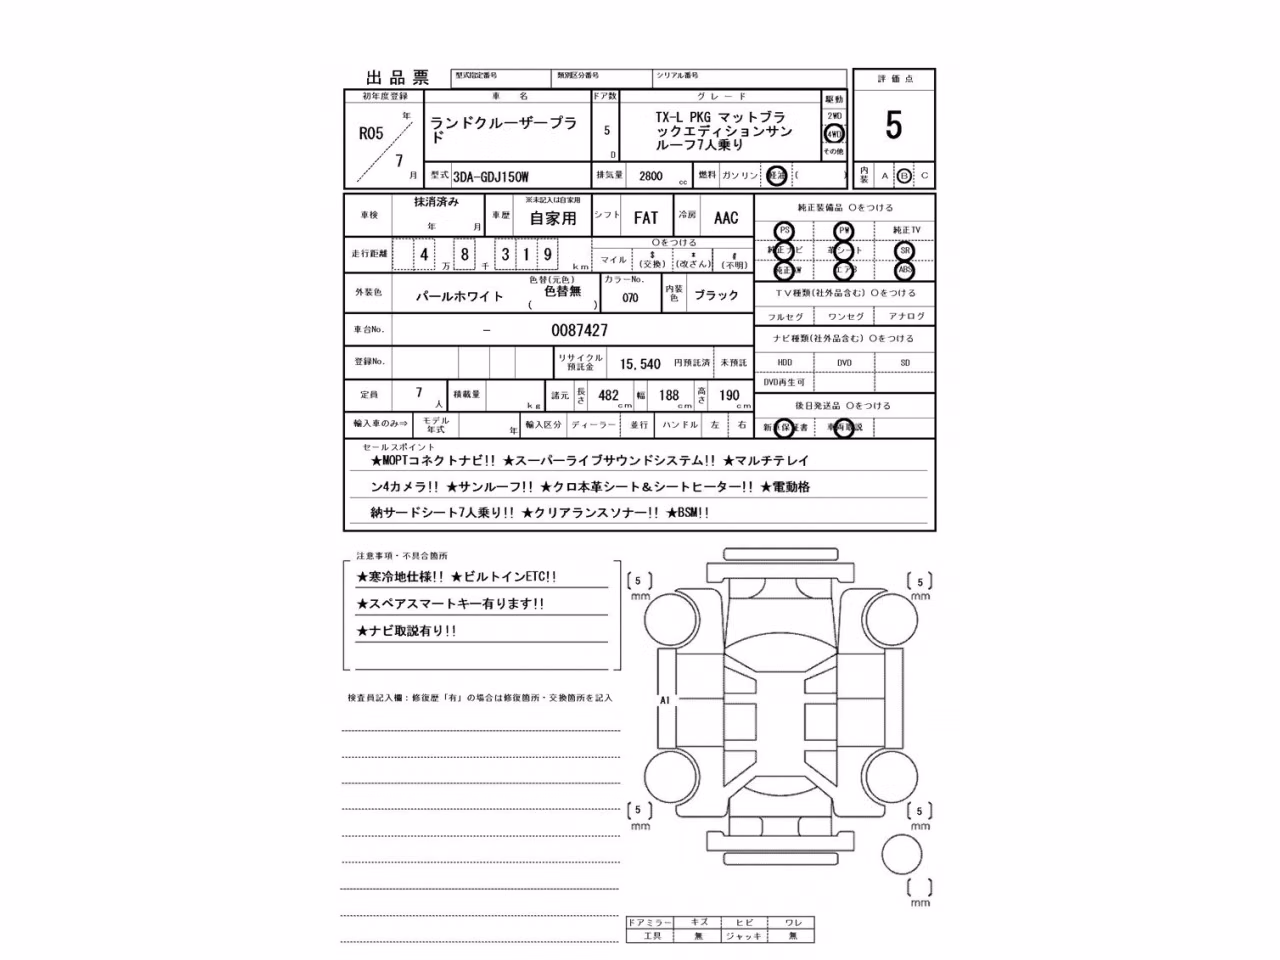 出品票
型式指定番号 類別区分番号 シリアル番号
評価点
5
内装 A B C
初年度登録 車名 ドア数 グレード 駆動
R05 年 7 月
ランドクルーザープラ
ド
5 D
TX-L PKG マットブラ
ックエディションサン
ルーフ7人乗り
2WD
4WD
その他
型式 3DA-GDJ150W 排気量 2800 cc 燃料 ガソリン 軽油 ( )
車検 抹消済み 年 月 車歴 ※未記入は自家用 自家用 シフト FAT 冷房 AAC
走行距離 4 万 8 千 3 1 9 km
〇をつける
マイル $(交換) *(改ざん) #(不明)
外装色 パールホワイト 色替(元色) 色替無 ( ) カラーNo. 070 内装色 ブラック
車台No. - 0087427
登録No. リサイクル預託金 15,540 円預託済 未預託
定員 7 人 積載量 kg 諸元 長さ 482 cm 幅 188 cm 高さ 190 cm
輸入車のみ⇒ モデル年式 年 輸入区分 ディーラー 並行 ハンドル 左 右
純正装備品 〇をつける
PS PW 純正TV
純正ナビ 革シート SR
純正AW エアB ABS
TV種類(社外品含む) 〇をつける
フルセグ ワンセグ アナログ
ナビ種類(社外品含む) 〇をつける
HDD DVD SD
DVD再生可
後日発送品 〇をつける
新車保証書 車両取説
セールスポイント
★MOPTコネクトナビ!! ★スーパーライブサウンドシステム!! ★マルチテレイ
ン4カメラ!! ★サンルーフ!! ★クロ本革シート＆シートヒーター!! ★電動格
納サードシート7人乗り!! ★クリアランスソナー!! ★BSM!!
注意事項・不具合箇所
★寒冷地仕様!! ★ビルトインETC!!
★スペアスマートキー有ります!!
★ナビ取説有り!!
検査員記入欄：修復歴「有」の場合は修復箇所・交換箇所を記入
5 mm
5 mm
A1
5 mm
5 mm
mm
ドアミラー キズ ヒビ ワレ
工具 無 ジャッキ 無